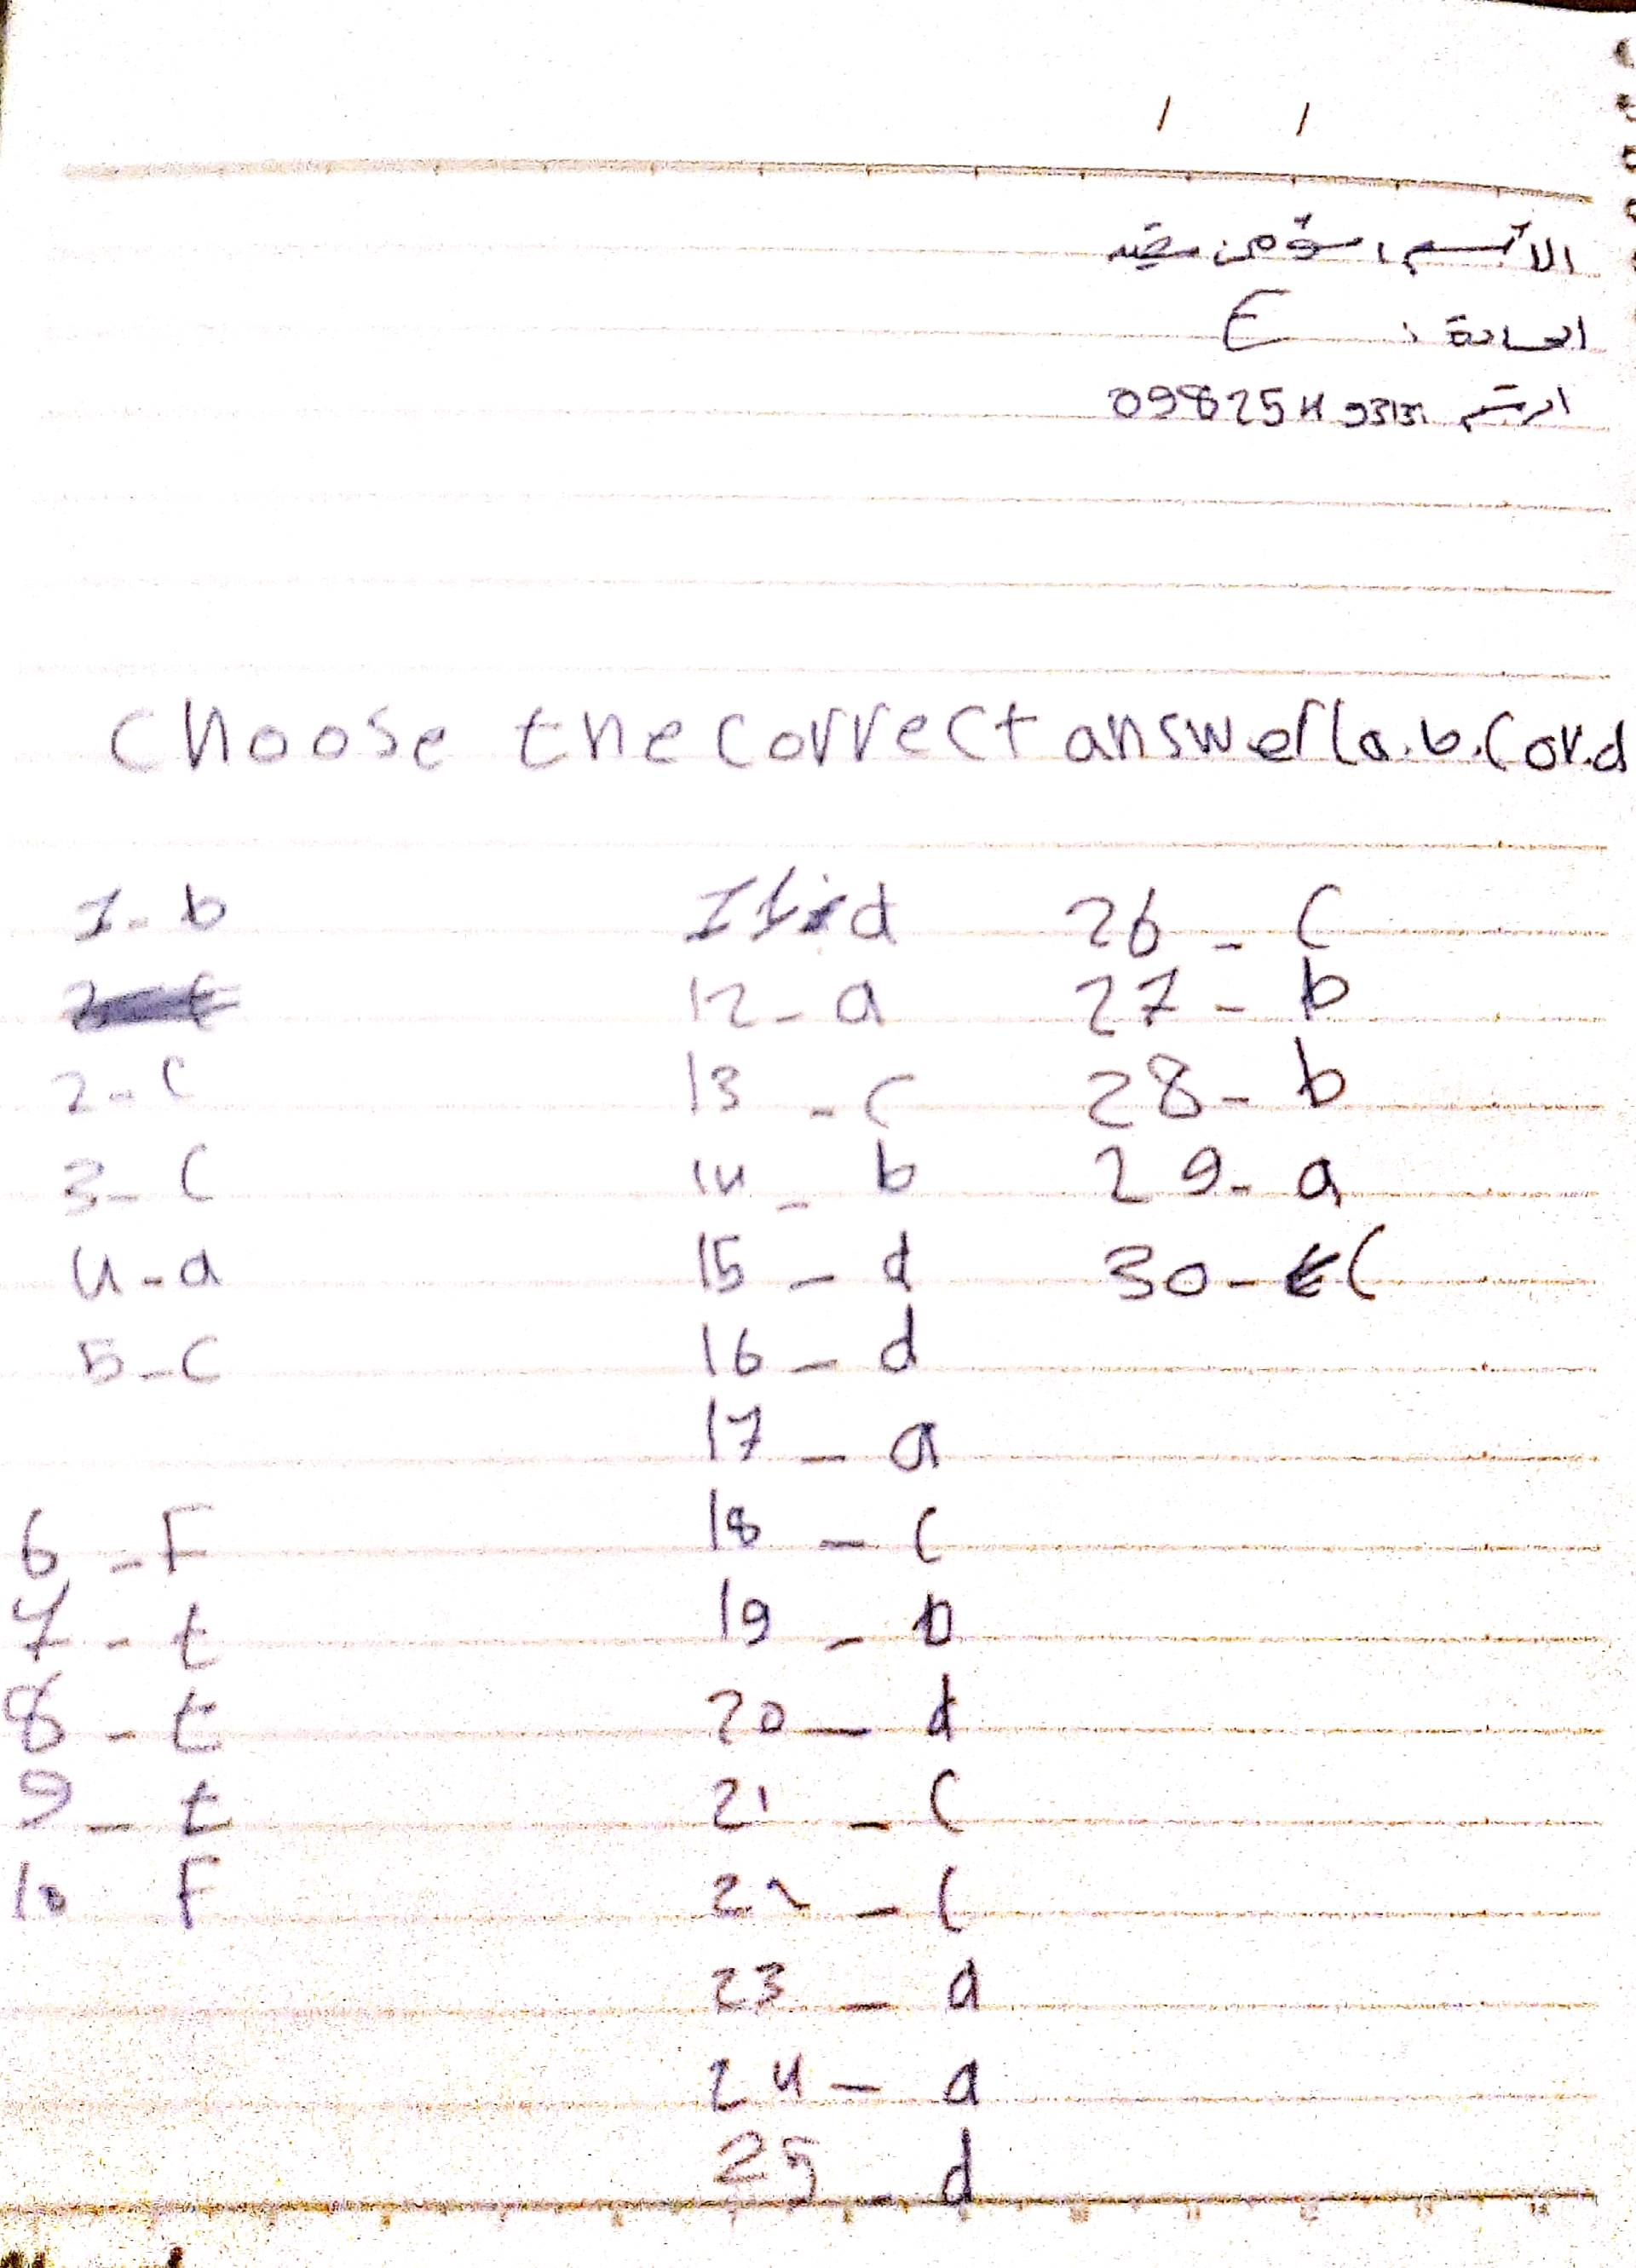 / /
الاسم: مؤمن
المادة: E
الرقم 09825493131
choose the correct answer (a.b.c or.d
1- b
2-c
3- c
4-a
5-c
6-F
7-t
8-t
9-t
10 F
11-d
12-a
13-c
14-b
15-d
16-d
17-a
18-c
19-b
20-d
21-c
22-c
23-a
24-a
25-d
26-c
27-b
28-b
29-a
30-c